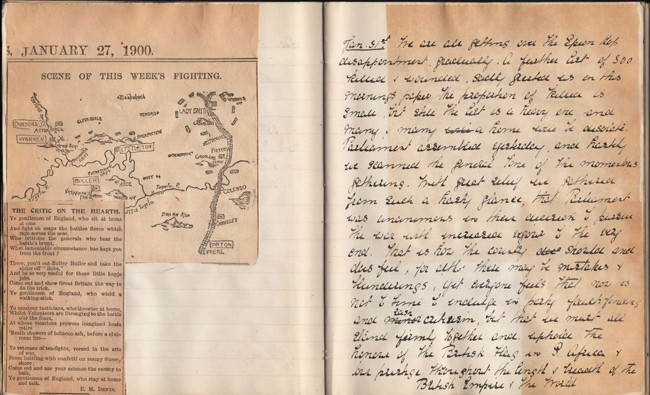 S, JANUARY 27, 1900.
SCENE OF THIS WEEK'S FIGHTING.
LADYSMITH
WARREN
BULLER
COLENSO
CHIEVELEY
BARTON
FRERE
THE CRITIC ON THE HEARTH.
Ye gentlemen of England, who sit at home
at ease,
And fight on maps the battles fierce which
rage across the seas,
Who criticise the generals who bear the
battle's brunt,
What lamentable circumstance has kept you
from the front?
There, you'd out-Buller Buller and take the
shine off "Bobs,"
And be so very useful for those little bogie
jobs.
Come out and show Great Britain the way to
do the trick,
Ye gentlemen of England, who wield a
walking-stick.
Ye amateur tacticians, who thunder at home,
Whilst Volunteers are thronging to the battle
o'er the foam,
At whose ferocious prowess
Beneath showers of tobacco ash, before a club-
room fire—
Ye veterans of tea-fights, versed in the arts
of war,
From battling with confetti on sunny
shore;
Come out and use your science the enemy to
balk,
Ye gentlemen of England, who stay at home
and talk.
Jan. 31st We are all getting over the Spion Kop
disappointment gradually. A further list of 300
killed & wounded, greeted us in this
mornings paper the proportion of killed is
small, but still the list is a heavy one and
many, many a home will be desolate.
Parliament assembled yesterday, and hastily
we scanned the general tone of the momentous
gathering. With great relief we gathered
from such a hasty glance, that Parliament
was unanimous in their decision to pursue
the war with increased vigour to the very
end. That is how the country should and
does feel, for altho' there may be mistakes &
blunderings, yet everyone feels that now is
not a time to indulge in petty faultfinding
and criticism, but that we must all
stand firmly together and uphold the
honour of the British Flag in S. Africa &
our prestige throughout the length & breadth of the
British Empire & the World